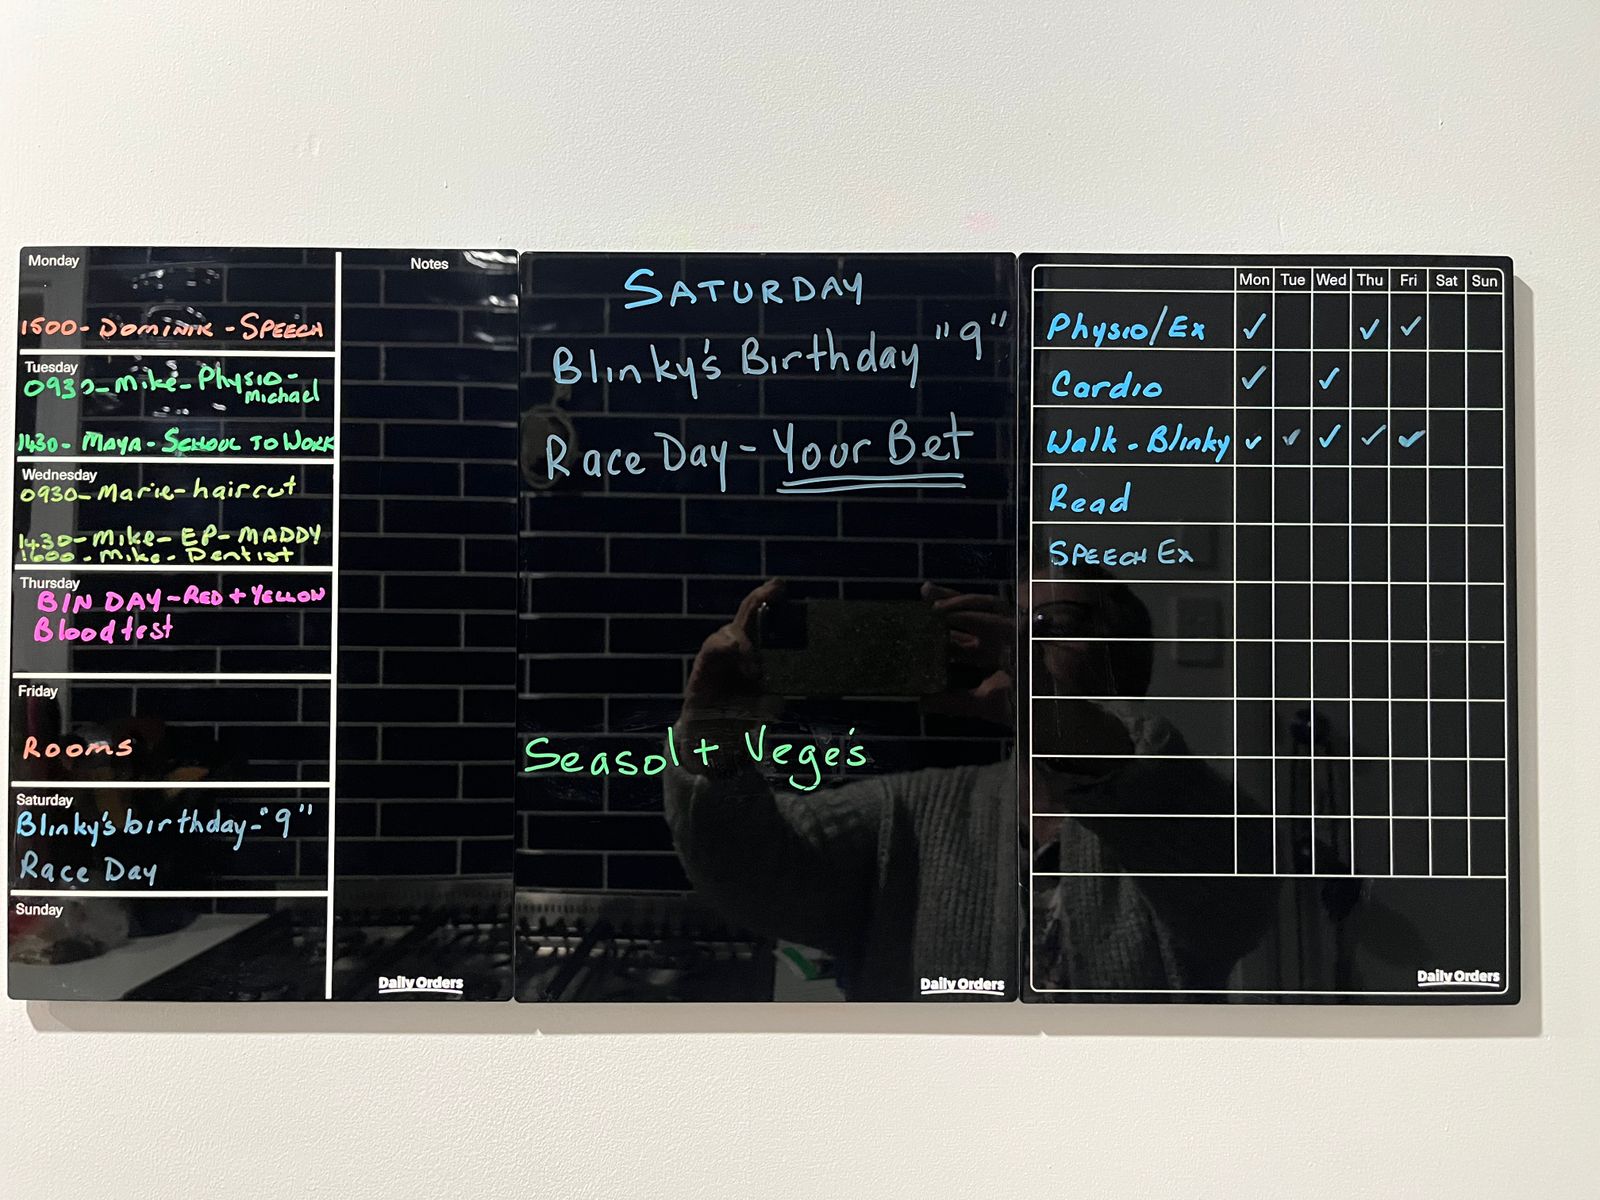 Monday
1500- DOMINIK - SPEECH
Tuesday
0930- Mike- Physio-
Michael
1430- MAYA- SCHOOL TO WORK
Wednesday
0930- Marie- haircut
1430- Mike- EP- MADDY
1600- Mike- Dentist
Thursday
BIN DAY - RED + YELLOW
Blood test
Friday
Rooms
Saturday
Blinky's birthday-"9"
Race Day
Sunday
Notes
Daily Orders
SATURDAY
Blinky's Birthday "9"
Race Day - Your Bet
Seasol + Vege's
Daily Orders
Mon Tue Wed Thu Fri Sat Sun
Physio/Ex ✓ ✓ ✓
Cardio ✓ ✓
Walk - Blinky ✓ ✓ ✓ ✓ ✓
Read
SPEECH Ex
Daily Orders